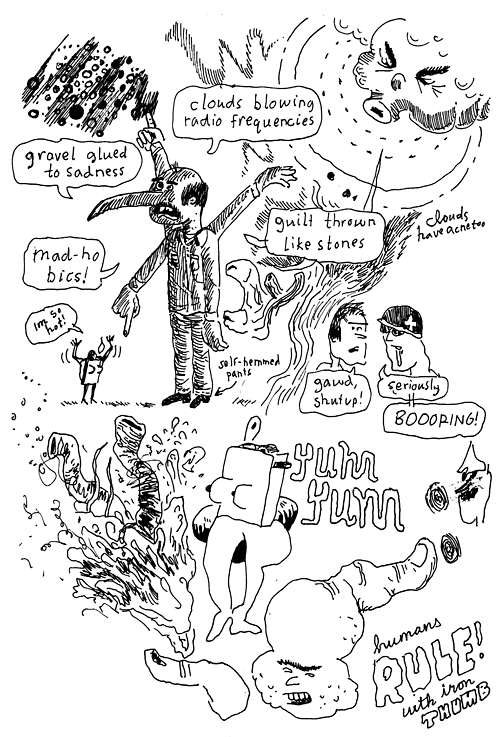 clouds blowing
radio frequencies
gravel glued
to sadness
guilt thrown
like stones
clouds
have acne too
mad-ho
bics!
Im so
hot!
self-hemmed
pants
gawd,
shutup!
seriously
BOOORING!
YUM
YUM
humans
RULE!
with iron
THUMB